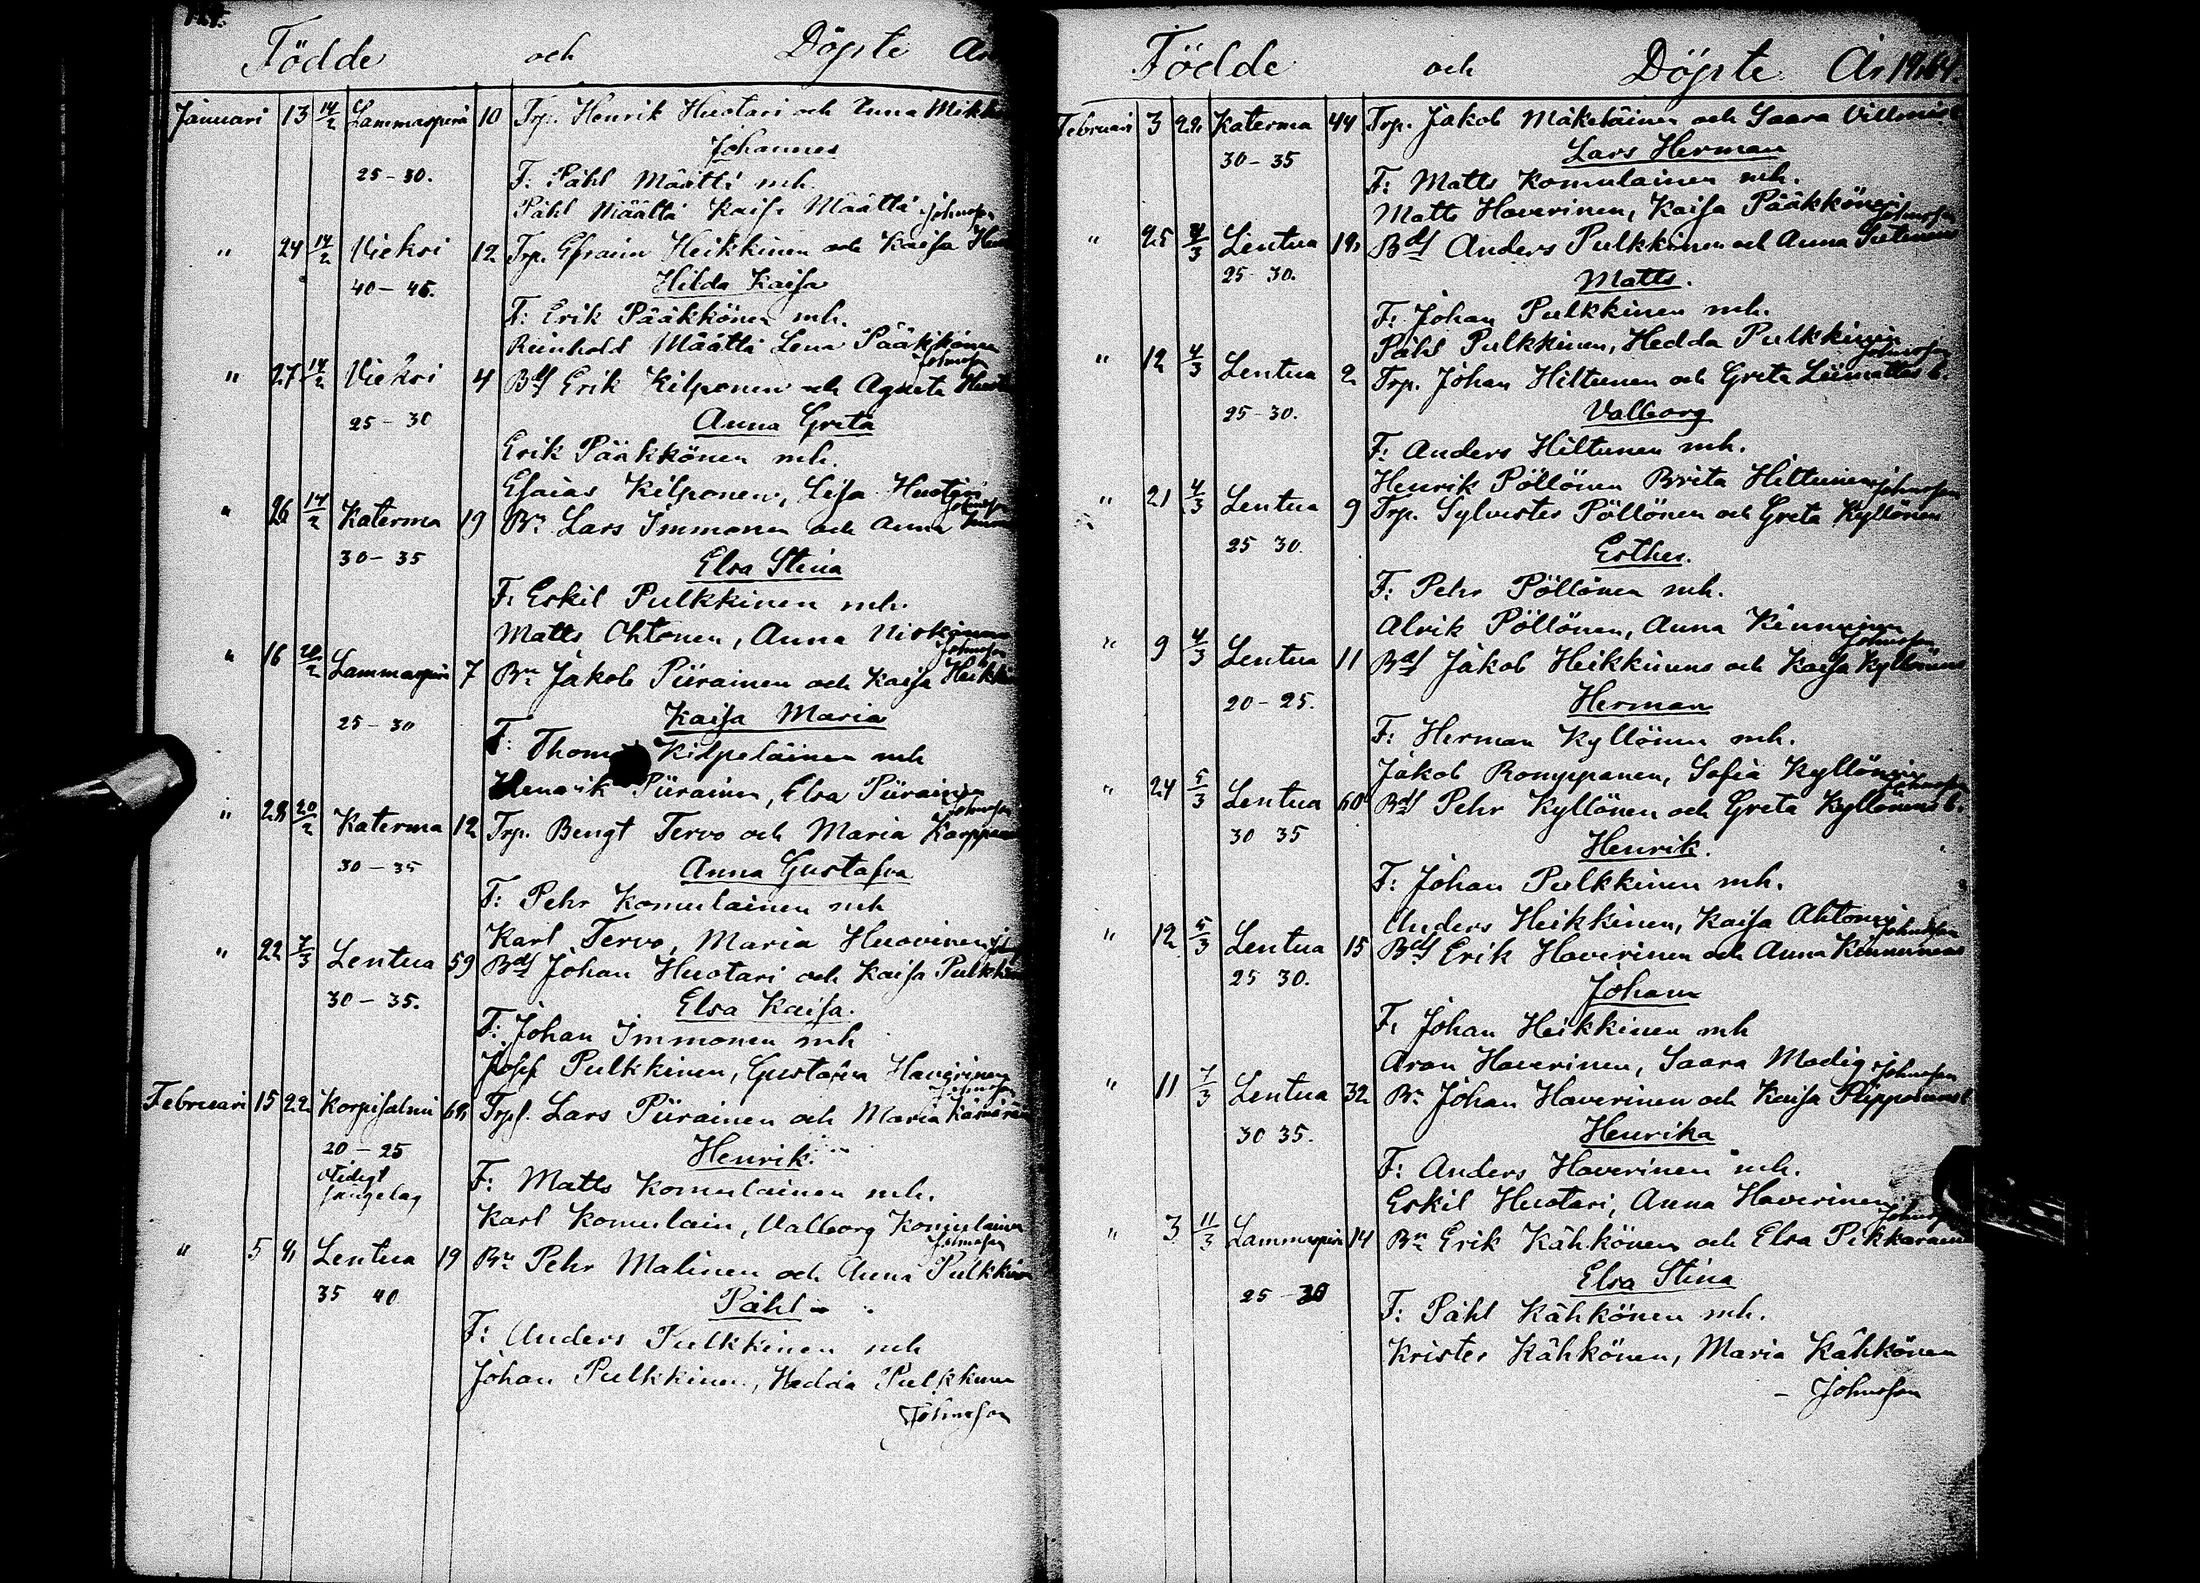 Födde och Döpte År
Januari 13 14/2 Lammasperä 10 Trp. Henrik Huotari och Anna
Johannes
25-30. F: Påhl Määttä mh.
Påhl Määttä Kaisa Määttä Johnsson
" 24 14/2 Vieksi 12 Trp. Efraim Heikkinen och Kaisa
Hilda Kaisa
40-45.
F: Erik Pääkkönen mh.
Reinhold Määttä Lena Pääkkönen
Johnsson
" 27 14/2 Vieksi 4 Bds Erik Kilponen och Agneta
25-30 Anna Greta
Erik Pääkkönen mh.
Esaias Kilponen, Lisa Huotari
Johnsson
" 26 14/2 Katerma 19 Bn Lars Immonen och Anna
30-35 Elsa Stina
F: Eskil Pulkkinen mh.
Matts Ohtonen, Anna
Johnsson
" 16 20/2 Lammasperä 7 Bn Jakob Piirainen och Kaisa
25-30 Kaisa Maria
F: Kilpeläinen mh
Henrik Piirainen, Elsa Piirainen
Johnsson
" 28 20/2 Katerma 12 Trp. Bengt Tervo och Maria
30-35 Anna Gustafva
F: Pehr Komulainen mh
Karl Tervo, Maria Huovinen
" 22 7/3 Lentua 59 Bds Johan Huotari och Kaisa
30-35. Elsa Kaisa.
F: Johan Immonen mh
Josef Pulkkinen, Gustafva Haverinen
Johnsson
Februari 15 22 Korpisalmi Trpf. Lars Piirainen och Maria
20-25 Henrik.
F: Matts Komulainen mh.
Karl Komulain, Valborg Komulainen
Johnsson
" 5 Lentua 19 Bn Pehr Malinen och Anna
35 40 Påhl
F: Anders Pulkkinen mh
Johan Pulkkinen, Hedda Pulkkinen
Johnsson
Födde och Döpte År
Februari 3 22 Katerma 44 Trp. Jakob Mäkeläinen och Saara
30-35 Lars Herman
F: Matts Komulainen mh.
Matts Haverinen, Kaisa Pääkkönen
Johnsson
" 25 4/3 Lentua 19 Bds Anders Pulkkinen och Anna
25 30. Matts.
F: Johan Pulkkinen mh.
Påhl Pulkkinen, Hedda Pulkkinen
Johnsson
" 12 4/3 Lentua 2 Trp. Johan Hiltunen och Greta
25-30. Valborg
F: Anders Hiltunen mh.
Henrik Pöllönen Brita Hiltunen Johnsson
" 21 4/3 Lentua 9 Trp. Sylvester Pöllönen och Greta Kyllönen
25 30. Esther.
F: Pehr Pöllönen mh.
Alrik Pöllönen, Anna Kinnunen
Johnsson
" 9 4/3 Lentua 11 Bds Jakob Heikkinens och Kaisa Kyllönens
20-25. Herman
F: Herman Kyllönen mh.
Jakob Romppanen, Sofia Kyllönen
Johnsson
" 24 5/3 Lentua 60 Bds Pehr Kyllönen och Greta Kyllönens b.
30 35 Henrik.
F: Johan Pulkkinen mh.
Anders Heikkinen, Kaisa Ahtonen
Johnsson
" 12 5/3 Lentua 15 Bds Erik Haverinen och Anna Kinnunens
25 30. Johan
F: Johan Heikkinen mh
Aron Haverinen, Saara Modig Johnsson
" 11 7/3 Lentua 32 Bn Johan Haverinen och Kaisa
30 35. Henrika
F: Anders Haverinen mh.
Eskil Huotari, Anna Haverinen
Johnsson
" 3 11/3 Lammasperä 14 Bn Erik Kähkönen och Elsa
25-30 Elsa Stina
F: Påhl Kähkönen mh.
Krister Kähkönen, Maria Kähkönen
- Johnsson